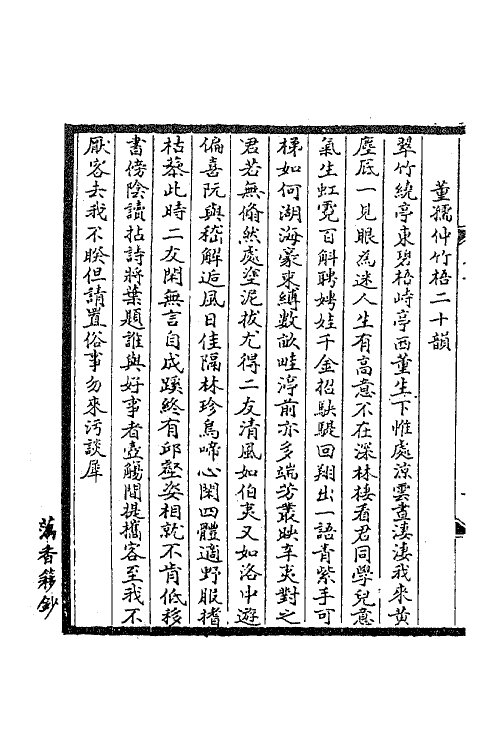 董孺仲竹梧二十韻
翠竹繞亭東碧梧峙亭西董生下帷處涼雲晝淒淒我來黃
塵底一見眼為迷人生有高意不在深林棲看君同學兒意
氣生虹霓百斛聘娉娃千金招駃騠回翔出一語青紫手可
梯如何湖海豪束縛數畝畦渟前亦多端芳叢妖辛夷對之
君若無翛然處塗泥拔尤得二友清風如伯夷又如洛中遊
偏喜阮與嵇解逅風日佳隔林珍鳥啼心閑四體適野服揩
枯藜此時二友閑無言自成蹊終有邱壑姿相就不肯低移
書傍陰讀拈詩將葉題誰與好事者壺觴間提攜客至我不
厭客去我不睽但請置俗事勿來汚談犀
藕香簃鈔